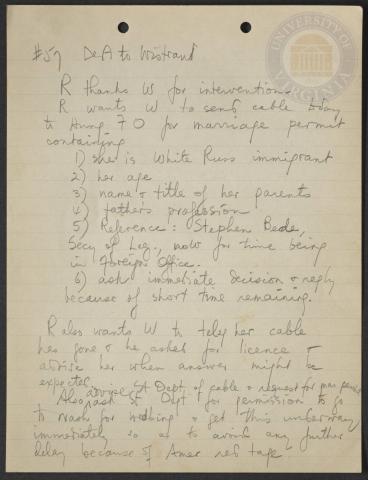 UNIVERSITY OF VIRGINIA
#57 DeA to Wistrand
R thanks W for intervention.
R wants W to send cable today
to Hung FO for marriage permit
containing
1) she is White Russ immigrant
2) her age
3) name & title of her parents
4) father's profession
5) Reference: Stephen Bede,
Secy of Leg., now for time being
in Foreign Office.
6) ask immediate decision & reply
because of short time remaining.
R also wants W to telep her cable
has gone & he asked for licence &
advise her when answer might be
expected.
advise St Dept of cable & request for mar permit
Also ask St Dept for permission to go
to Wash for wedding & get this underway
immediately so as to avoid any further
delay because of Amer red tape